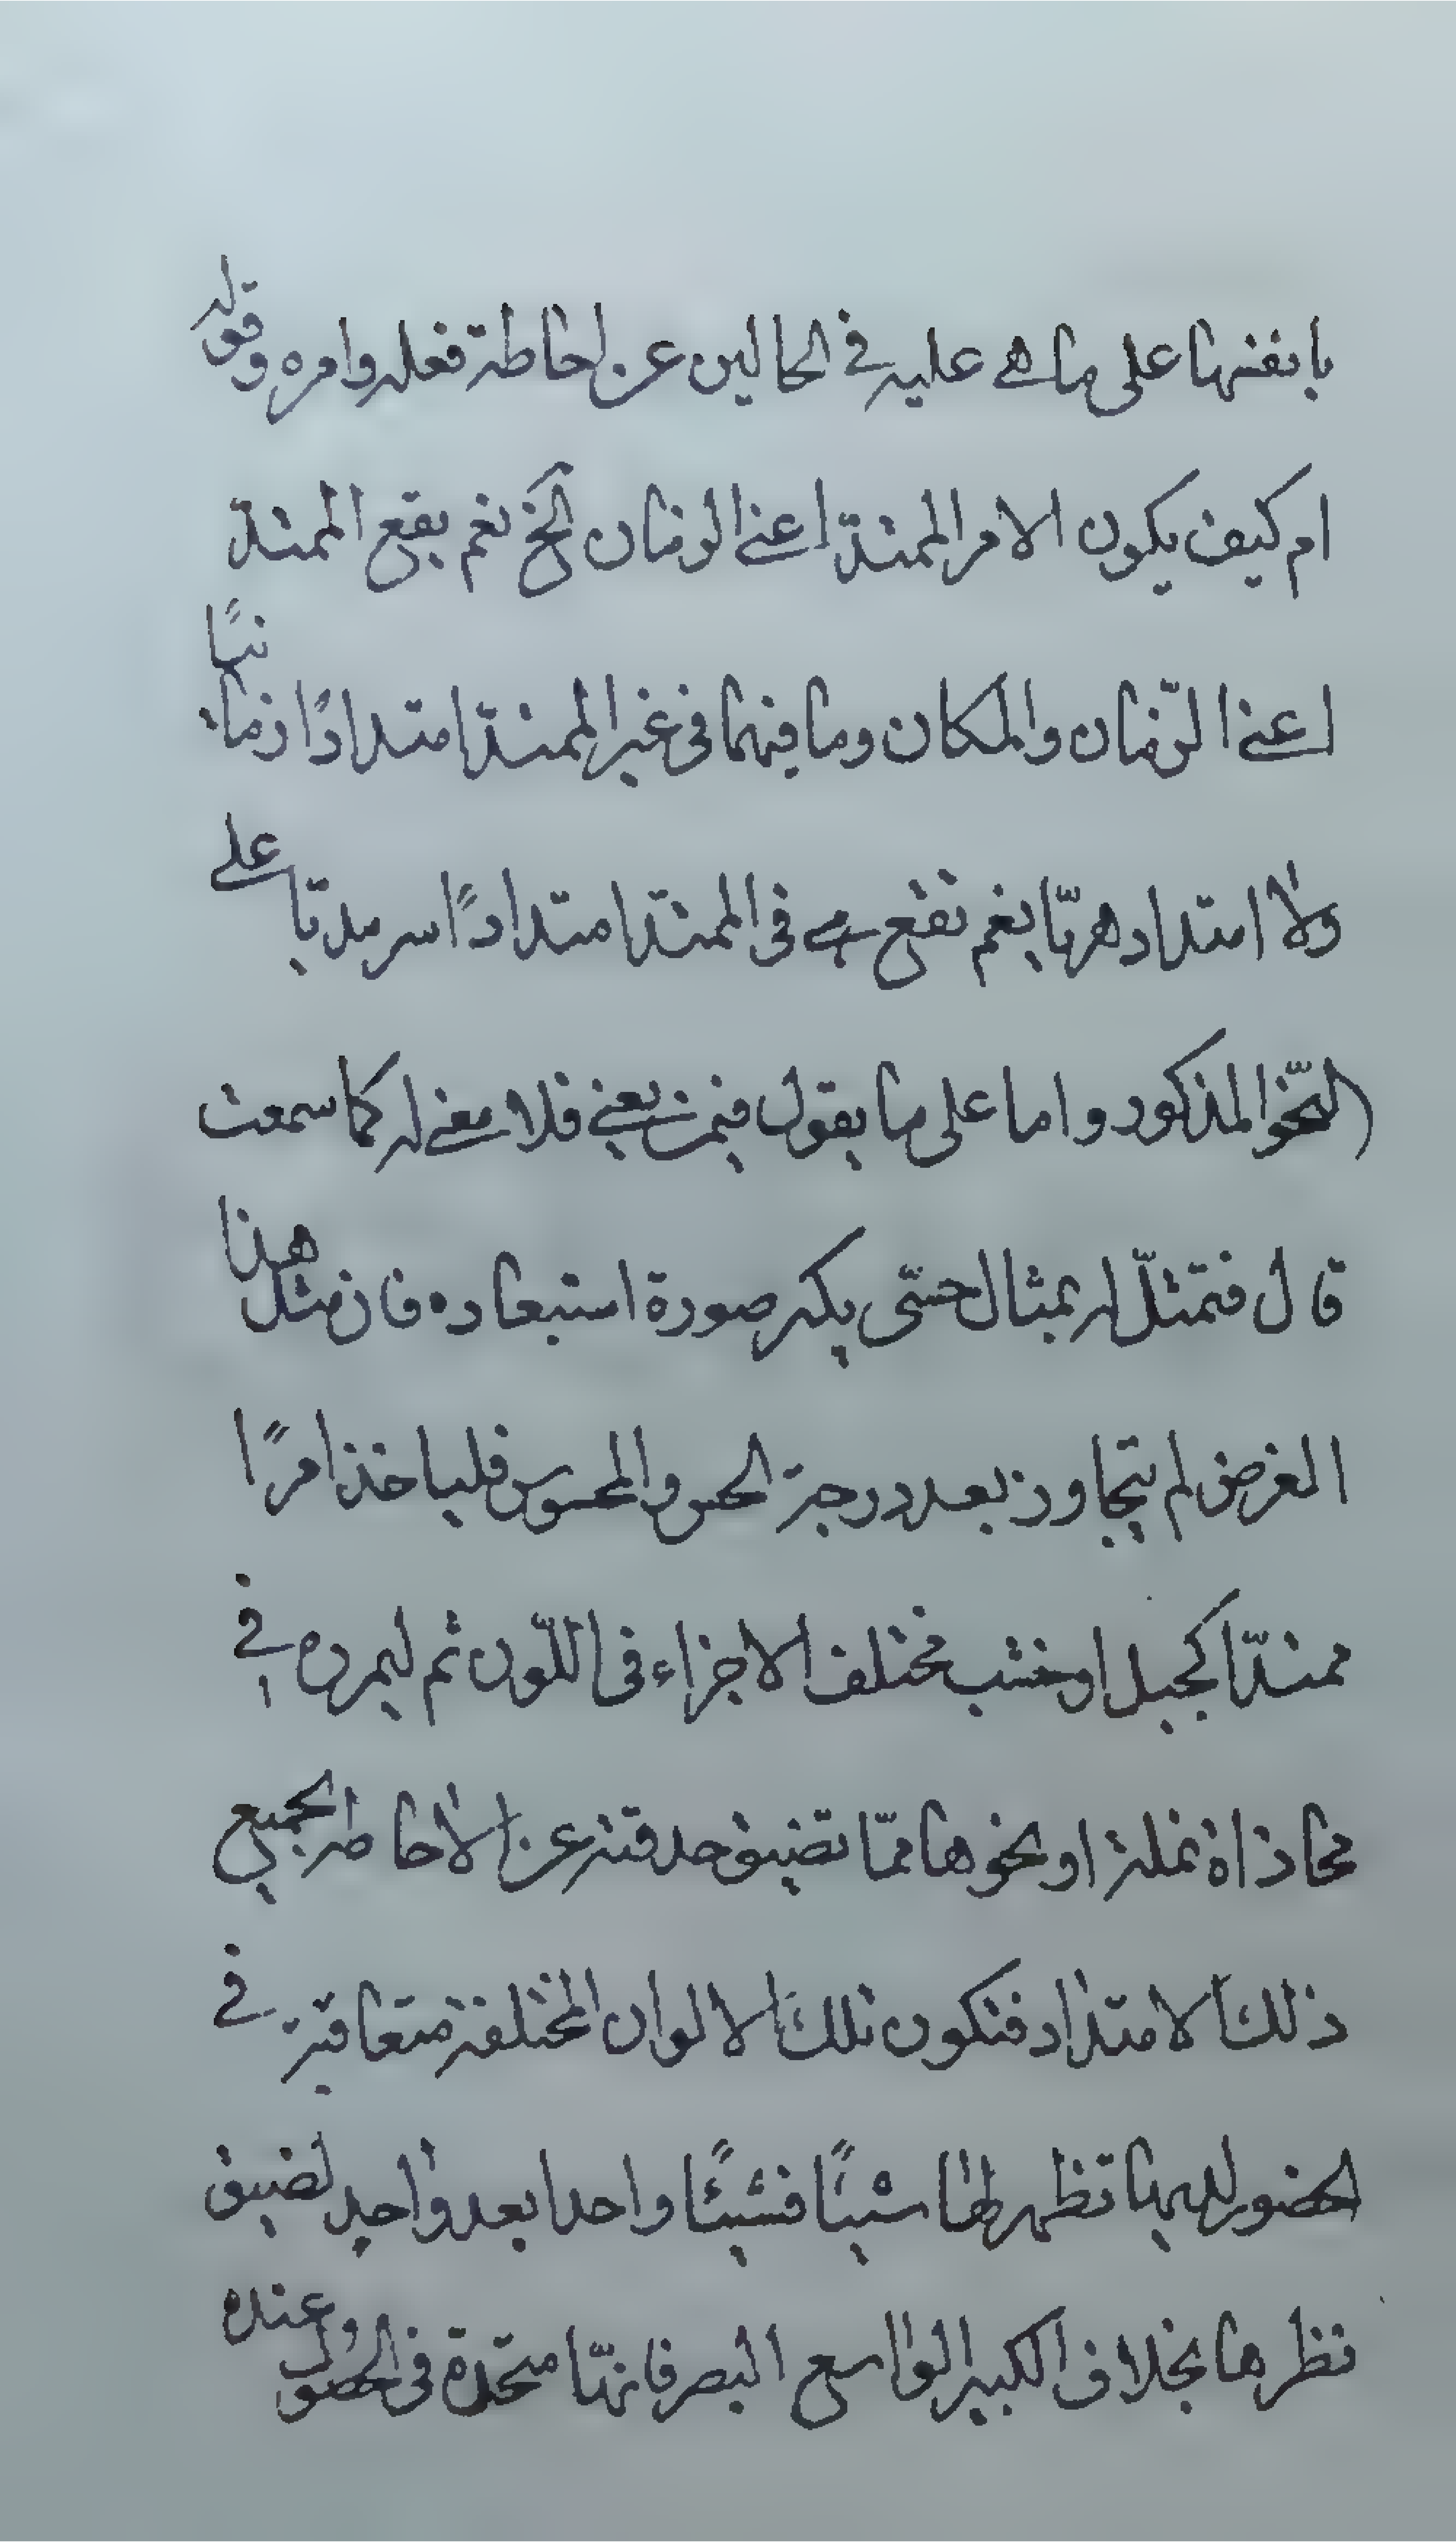 بانفسها على ما هى عليه فى الحالين عن احاطة فعله وامره وقوله
ام كيف يكون الامر الممتدّ اعنى الزمان الخ نعم يقع الممتدّ
اعنى الزّمان والمكان وما فيهما فى غير الممتدّ امتدادًا زمانيًا
ولا امتداد دهريّا نعم تقع هى فى الممتد امتدادًا سرمديّا على
النّحو المذكور واما على ما يقول فيمن يعنى فلا معنى له كما سمعت
قال فتمثّل له بمثال حسّى يكسر صورة استبعاده فان مثل هذا
الغرض لم يتجاوز بعد درجة الحس والمحسوس فلياخذ امرًا
ممتدّا كجبل او خشب مختلف الاجزاء فى اللّون ثم ليمرره فى
محاذاة نملة او نحوها ممّا تضيق حدقته عن الاحاطه بجميع
ذلك الامتداد فتكون تلك الالوان المختلفة متعاقبة فى
الحضور لديها تظهر لها شيئًا فشيئًا واحدا بعد واحد لضيق
نظرها بخلاف الكبير الواسع البصر فانهّا متحّدة فى الحصول عنده